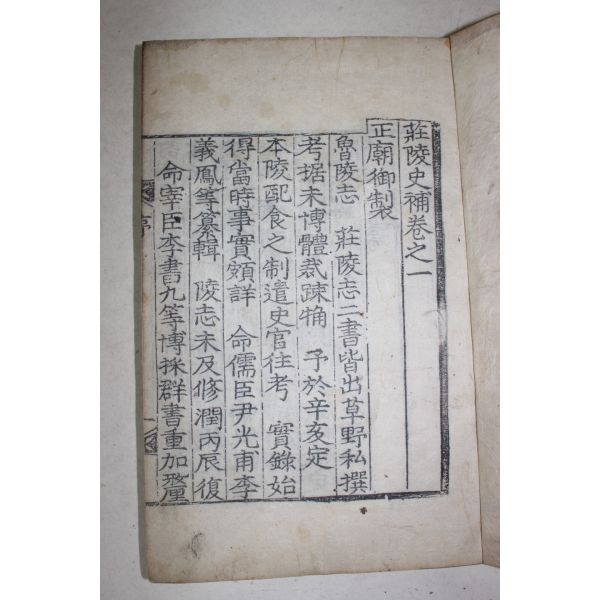 莊陵史補卷之一
正廟御製
魯陵志 莊陵志二書皆出草野私撰
考据未博體裁疎犕 予於辛亥定
本陵配食之制遣史官往考 實錄始
得當時事實頗詳 命儒臣尹光甫李
義鳳等纂輯 陵志未及修潤丙辰復
命宰臣李書九等博採群書重加釐
序
一